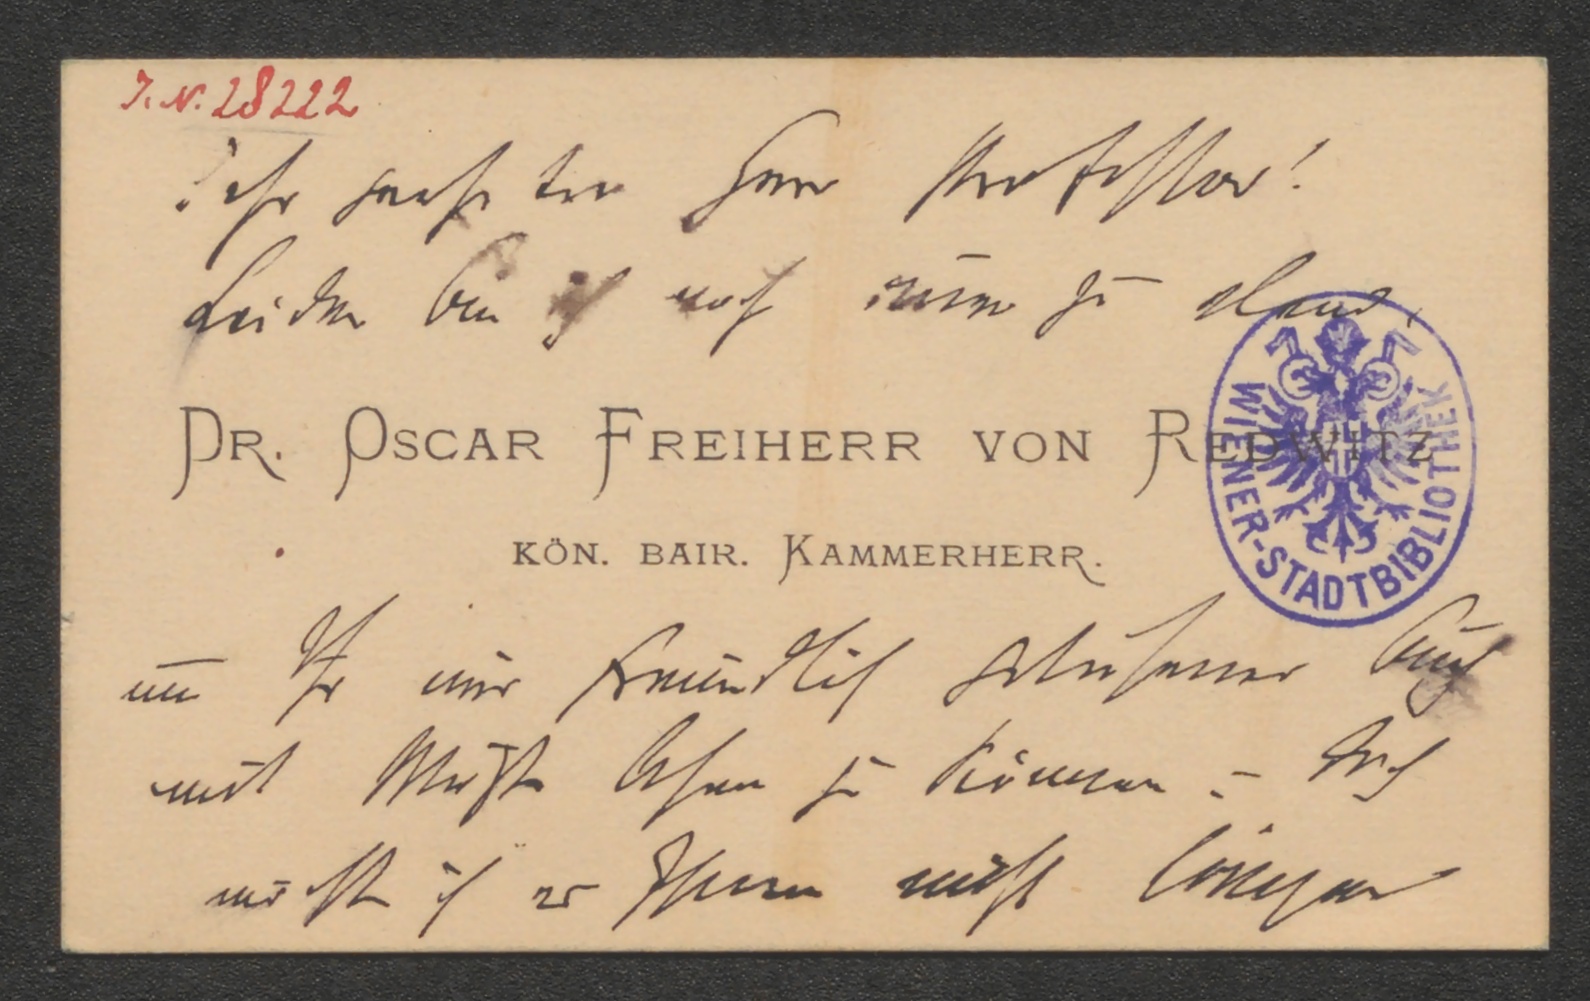 J. N. 28222
Sehr geehrter Herr Professor!
Leider bin ich noch immer zu elend,
DR. OSCAR FREIHERR VON REDWITZ
KÖN. BAIR. KAMMERHERR.
WIENER-STADTBIBLIOTHEK
um Ihr mir freundlich geliehenes Buch
mit Muße lesen zu können – Doch
möchte ich es Ihnen nicht länger